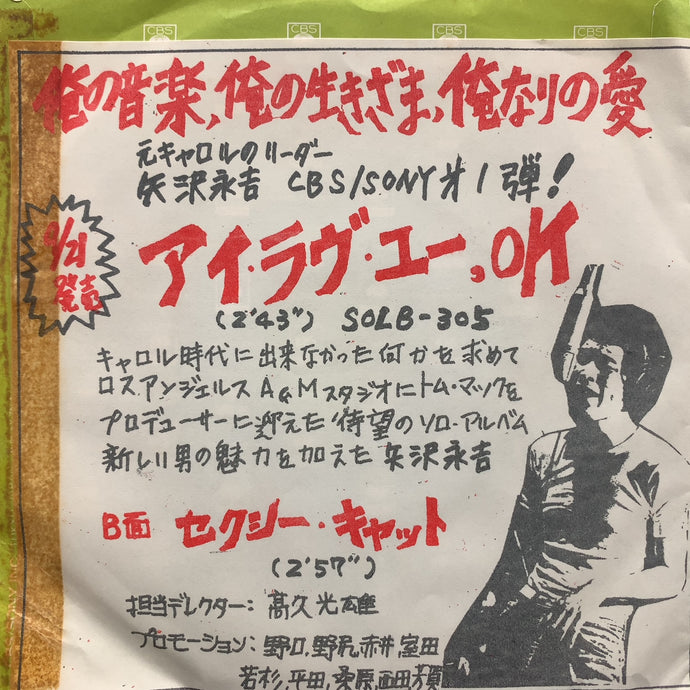 CBS CBS CBS
俺の音楽,俺の生きざま,俺なりの愛
元キャロルのリーダー
矢沢永吉 CBS/SONY才1弾!
9/21
発売
アイ・ラヴ・ユー,OK
(2'43") SOLB-305
キャロル時代に出来なかった何かを求めて
ロスアンジェルス A&Mスタジオにトム・マックを
プロデューサーに迎えた待望のソロ・アルバム
新しい男の魅力を加えた矢沢永吉
B面 セクシー・キャット
(2'57")
担当デレクター: 高久光雄
プロモーション: 野口,野尻,赤井,室田
若杉,平田,桑原,西田,芳賀